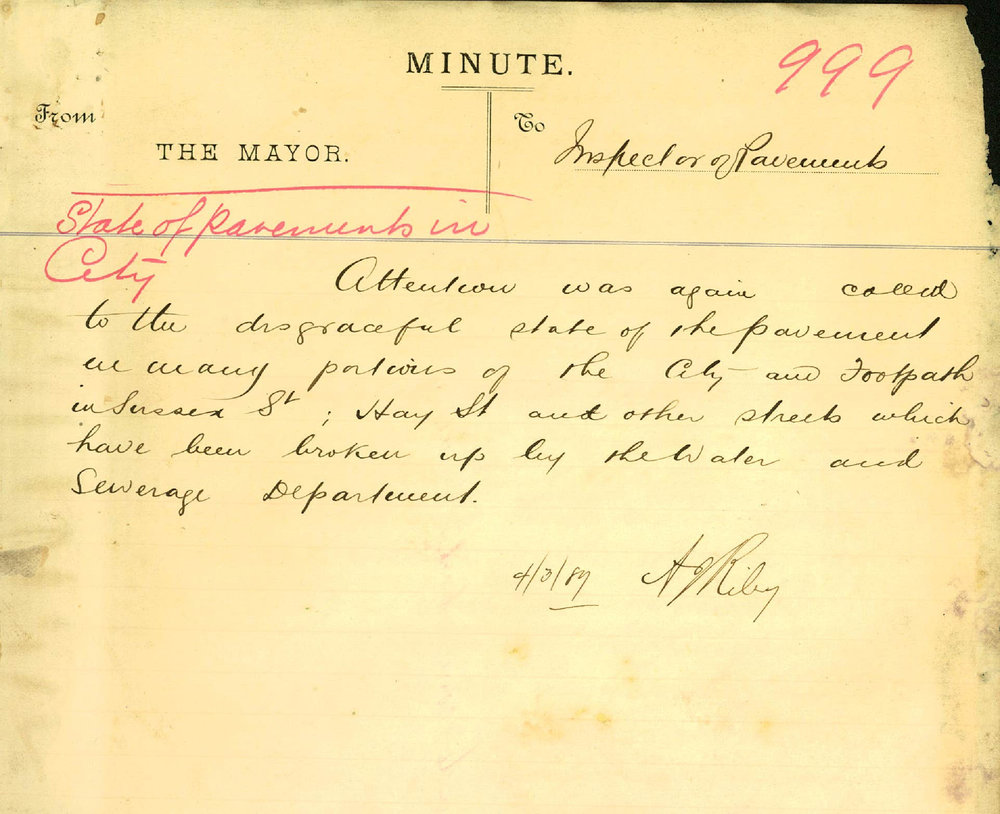 MINUTE.
999
From
To
THE MAYOR.
Inspector of Pavements
State of Pavements in
City
Attention was again called
to the disgraceful state of the pavement
in many portions of the City and Footpath
in Sussex St ; Hay St and other streets which
have been broken up by the Water and
Sewerage Department.
4/3/89 AJ Riley